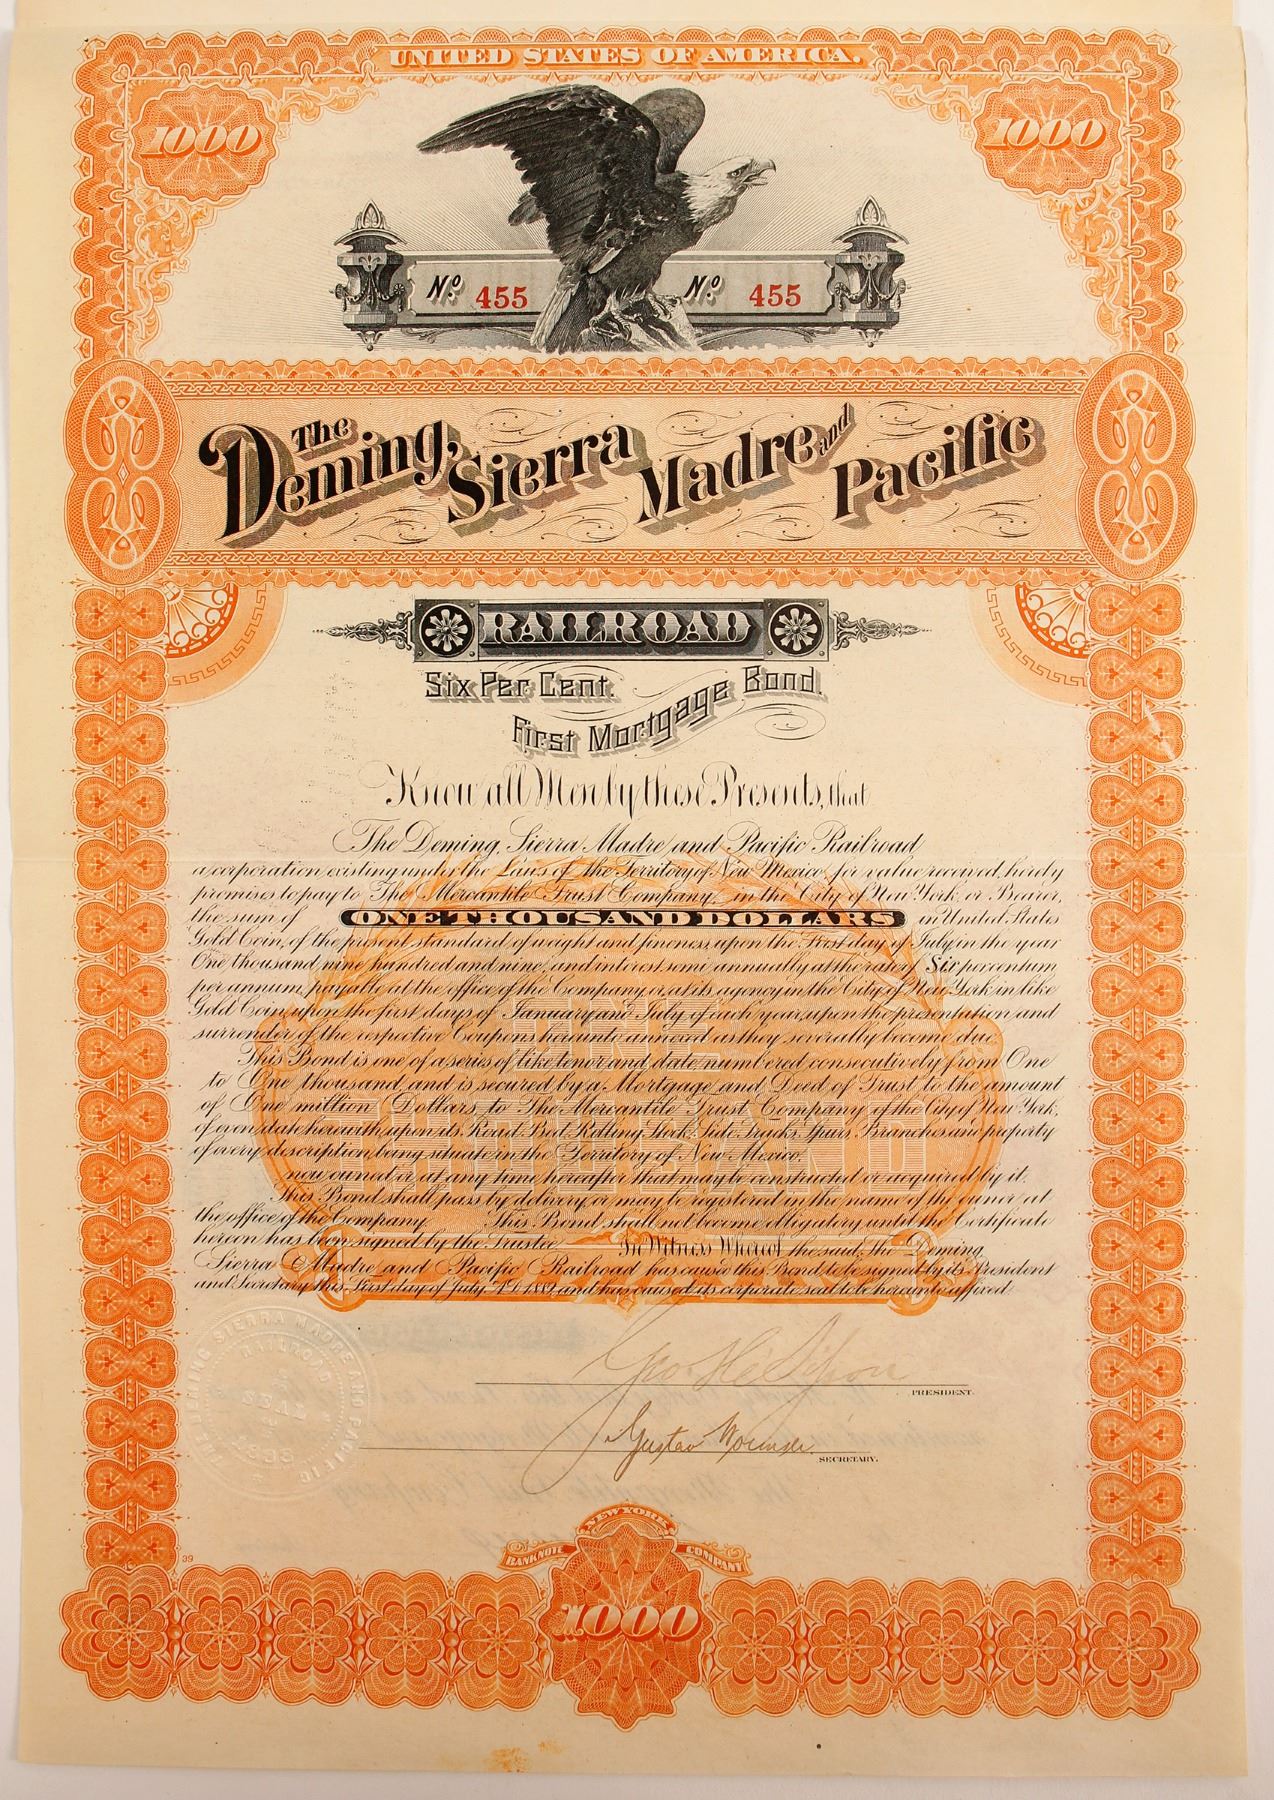 UNITED STATES OF AMERICA.
1000 1000
No. 455 No. 455
The Deming, Sierra Madre and Pacific
RAILROAD
Six Per Cent.
First Mortgage Bond.
Know all Men by these Presents, that
The Deming, Sierra Madre and Pacific Railroad
a corporation existing under the Laws of the Territory of New Mexico, for value received, hereby
promises to pay to The Mercantile Trust Company, in the City of New York, or Bearer,
the sum of ONE THOUSAND DOLLARS in United States
Gold Coin, of the present standard of weight and fineness, upon the First day of July in the year
One thousand nine hundred and nine, and interest semi annually at the rate of Six per centum
per annum, payable at the office of the Company, or at its agency in the City of New York in like
Gold Coin, upon the first days of January and July of each year, upon the presentation and
surrender of the respective Coupons hereunto annexed as they severally become due.
This Bond is one of a series of like tenor and date, numbered consecutively from One
to One thousand, and is secured by a Mortgage and Deed of Trust to the amount
of One million Dollars, to The Mercantile Trust Company of the City of New York,
of even date herewith, upon its Road Bed, Rolling Stock, Side Tracks, Spurs, Branches and property
of every description being situate in the Territory of New Mexico,
now owned or at any time hereafter that may be constructed or acquired by it.
This Bond shall pass by delivery or may be registered in the name of the owner at
the office of the Company. This Bond shall not become obligatory until the Certificate
hereon has been signed by the Trustee. In Witness Whereof the said, The Deming
Sierra Madre and Pacific Railroad has caused this Bond to be signed by its President
and Secretary this First day of July A.D. 1889 and has caused its corporate seal to be hereunto affixed.
ONE
THOUSAND
PRESIDENT.
Gustav
SECRETARY.
THE DEMING SIERRA MADRE AND PACIFIC
RAILROAD
SEAL
39
NEW YORK
BANK NOTE COMPANY
1000